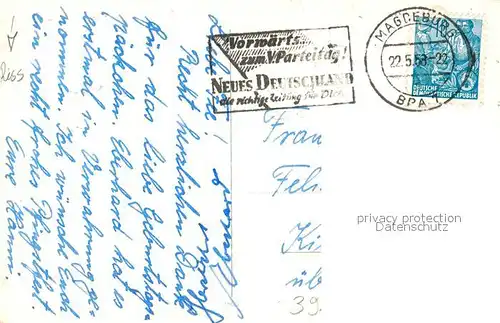 Vorwärts
zum V. Parteitag!
NEUES DEUTSCHLAND
die richtige Zeitung für Dich.
MAGDEBURG
22.5.58-22
BPA
DEUTSCHE
DEMOKRATISCHE REPUBLIK
5
Recht herzlichen Dank
für das liebe Geburtstags-
päckchen. Eberhard hat es
erstmal in Verwahrung ge-
nommen. Ich wünsche Euch
ein recht frohes Pfingstfest.
Eure Hanni.
Frau
Fel
Ki
üb
39
privacy protection
Datenschutz